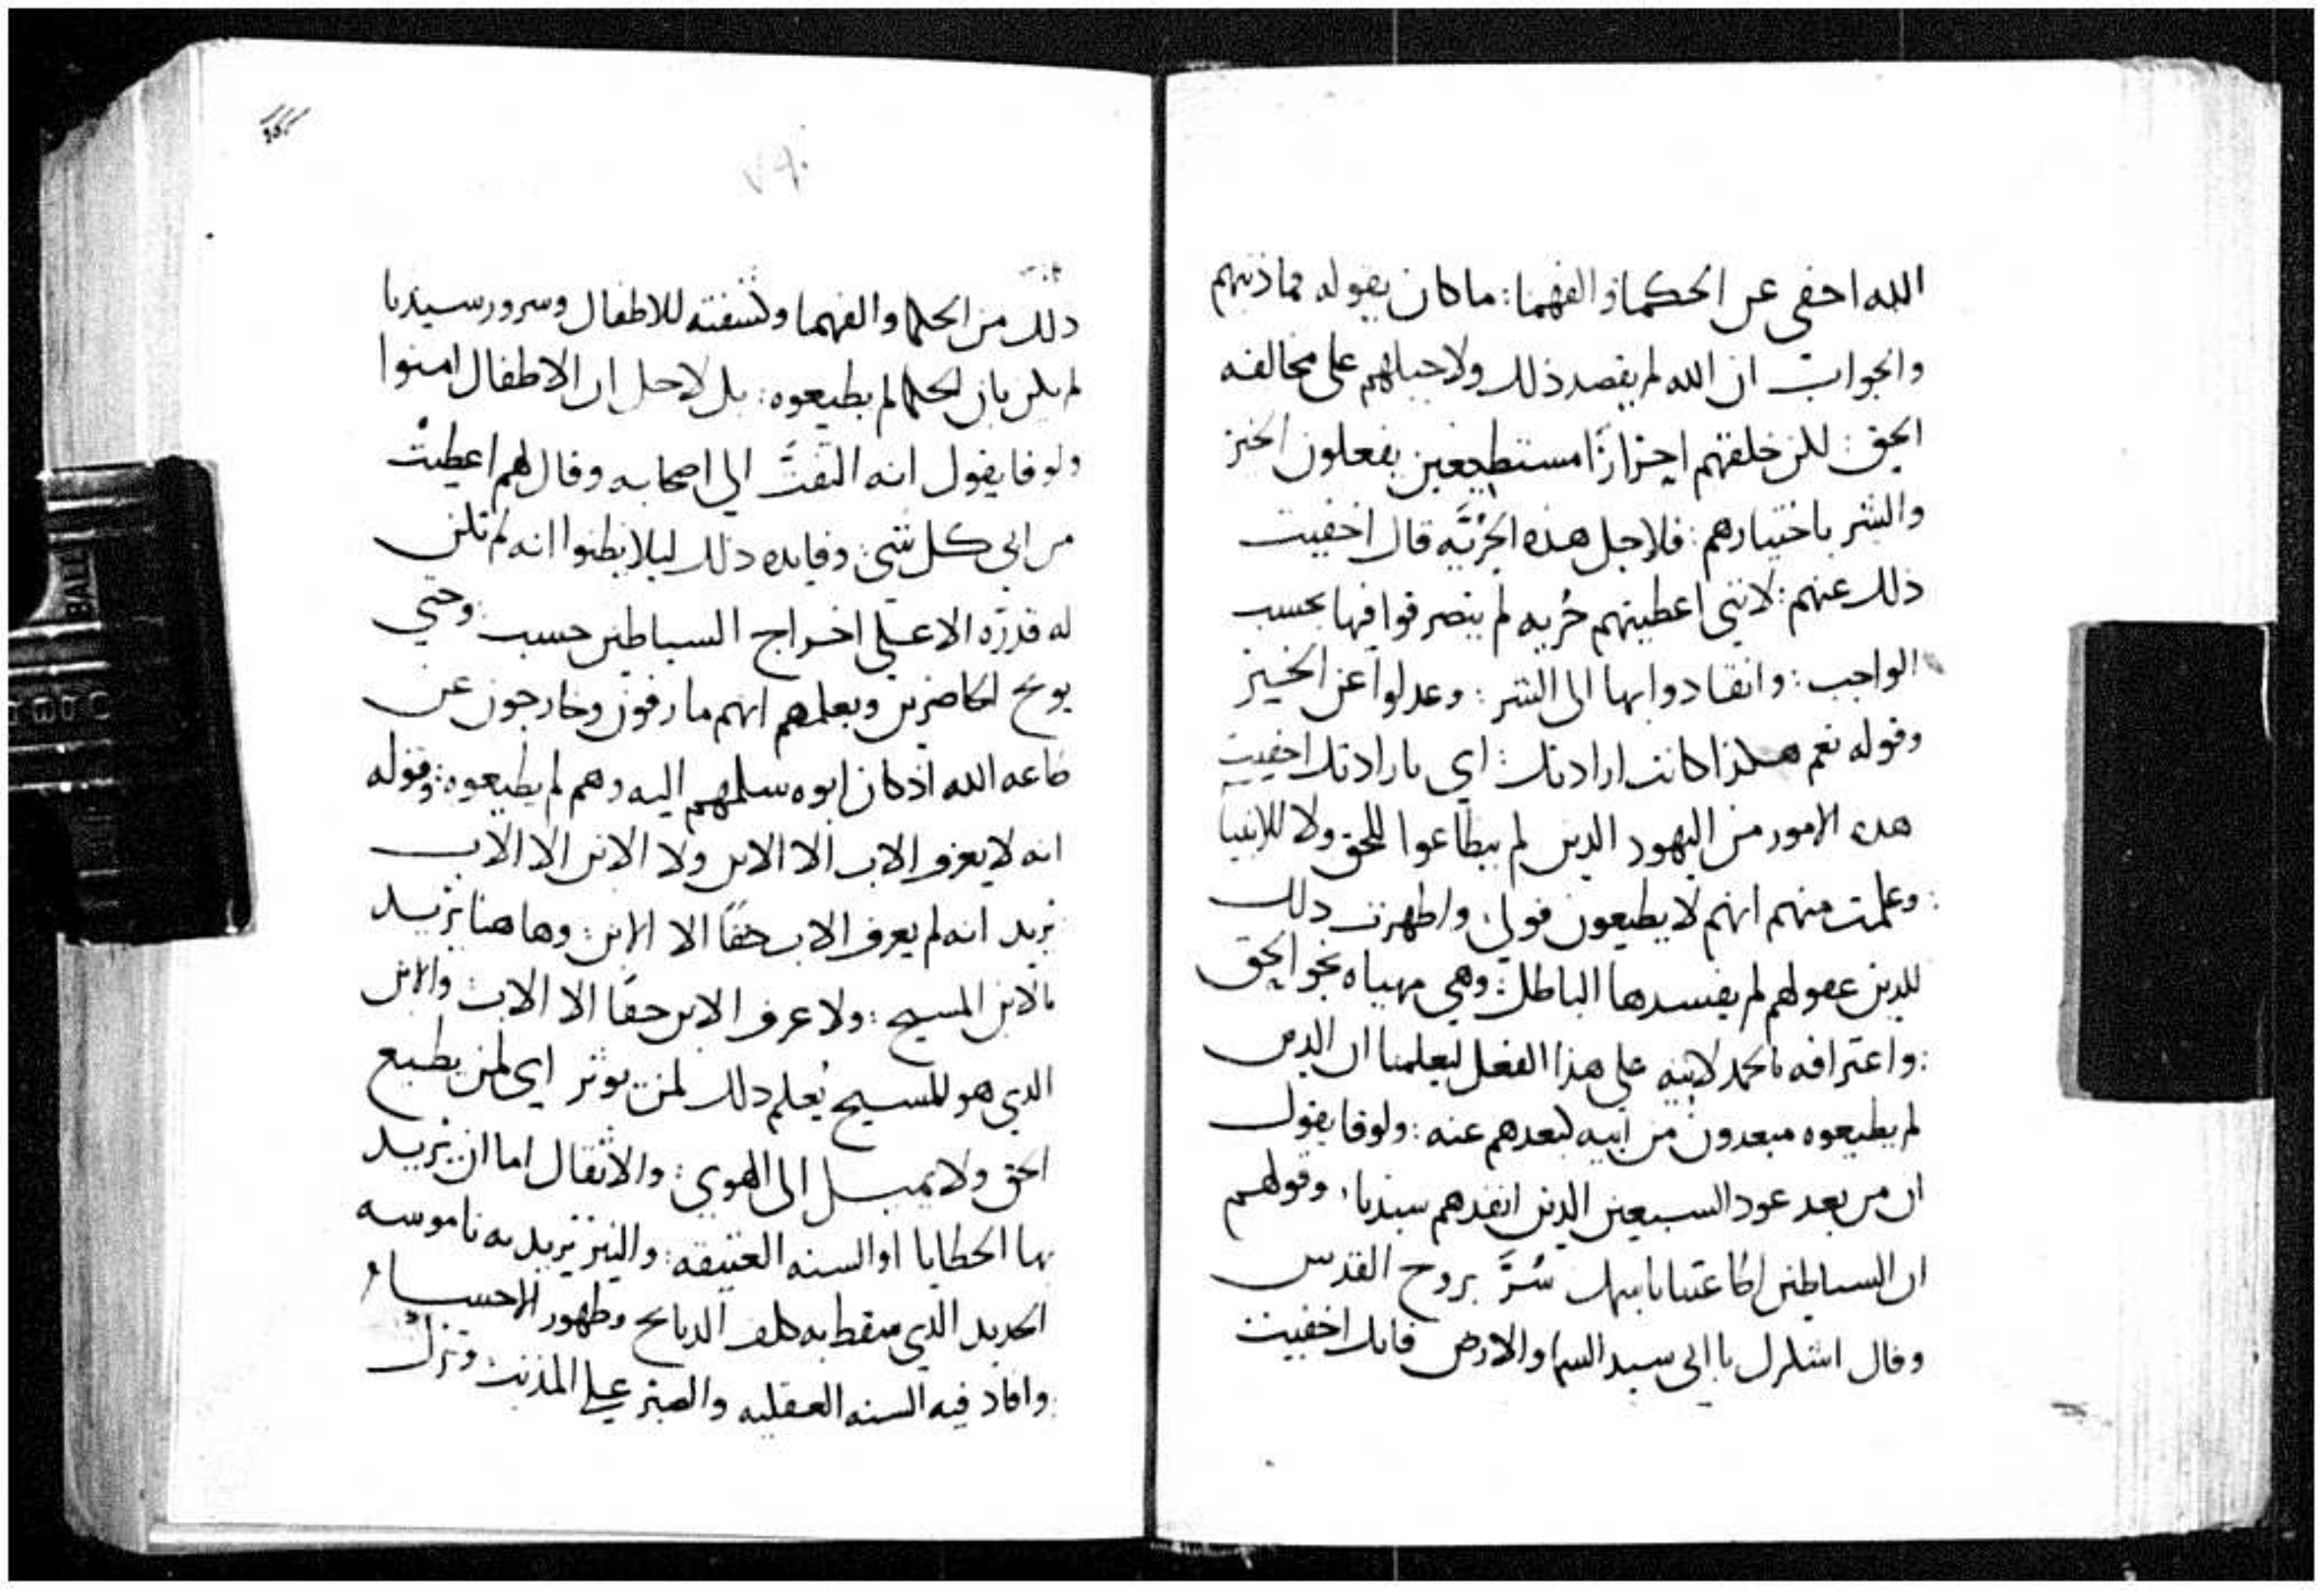 الله احفى عن الحكما والفهما: ما كان يقوله فما ذنبهم
والجواب ان الله لم يقصد ذلك ولا جبلهم على مخالفه
الحق: لكن خلقهم احرارًا مستطيعين يفعلون الخير
والشر باختيارهم: فلاجل هذه الحُريَّه قال اخفيت
ذلك عنهم: لانني اعطيتهم حُريه لم يتصرفوا فيها بحسب
الواجب: وانقادوا بها الى الشر: وعدلوا عن الخير
وقوله نعم هكذا كانت ارادتك: اي بارادتك اخفيت
هده الامور من اليهود الدين لم يطاعوا للحق ولا للانبيا
: وعلمت منهم انهم لا يطيعون قولي: واظهرت دلك
للدين عقولهم لم يفسدها الباطل: وهي مهياه نحو الحق
: واعترافه بالحمد لابيه على هذا الفعل ليعلمنا ان الدين
لم يطيعوه مبعدون من ابيه لبعدهم عنه: ولوقا يقول
ان من بعد عود السبعين الدين انفدهم سيدنا: وقولهم
ان السياطين اطاعتنا باسمك سُرَّ بروح القدس
وقال اشكرك يا ابي سيد السما والارض فانك اخفيت
دلك من الحكما والفهما وكشفته للاطفال وسرور سيدنا
لم يكن بان الحكما لم يطيعوه: بل لاجل ان الاطفال امنوا
ولوقا يقول انه التفتَ الى اصحابه وقال لهم اعطيتُ
من ابي كل شي: وفايده دلك ليلا يظنوا انه لم تكن
له قدره الا على اخراج السياطين حسب: وحتي
يوبح الحاضرين ويعلمهم انهم مارقون وخارجون عن
طاعه الله اذ كان ابوه سلمهم اليه وهم لم يطيعوه: وقوله
انه لا يعرف الاب الا الابن ولا الابن الا الاب
يريد انه لم يعرف الاب حقًا الا الابن: وها هنا يريد
بالابن المسيح: ولا عرف الابن حقًا الا الاب: والابن
الدي هو المسيح يُعلم دلك لمن يوثر اي لمن يطيع
الحق ولا يميل الى الهوي: والاثقال اما ان يريد
بها الحطايا او السنه العتيقه: والنير يريد به ناموسه
الحديد الدي سقط به كلف الدبايح وطهور الاجساد
: وافاد فيه السنه العقليه والصبر على المذنب وترك